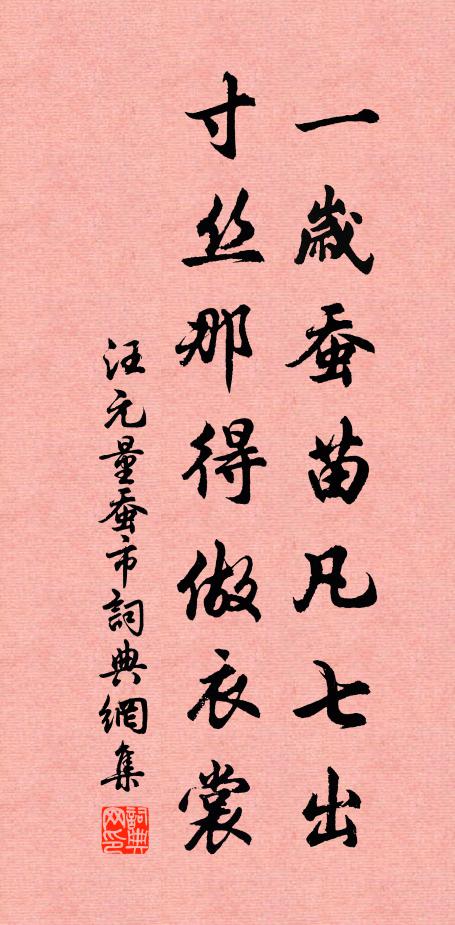 一歲蚕苗凡七出
寸丝那得做衣裳
汪元量蚕市詞典網集
詞典网印